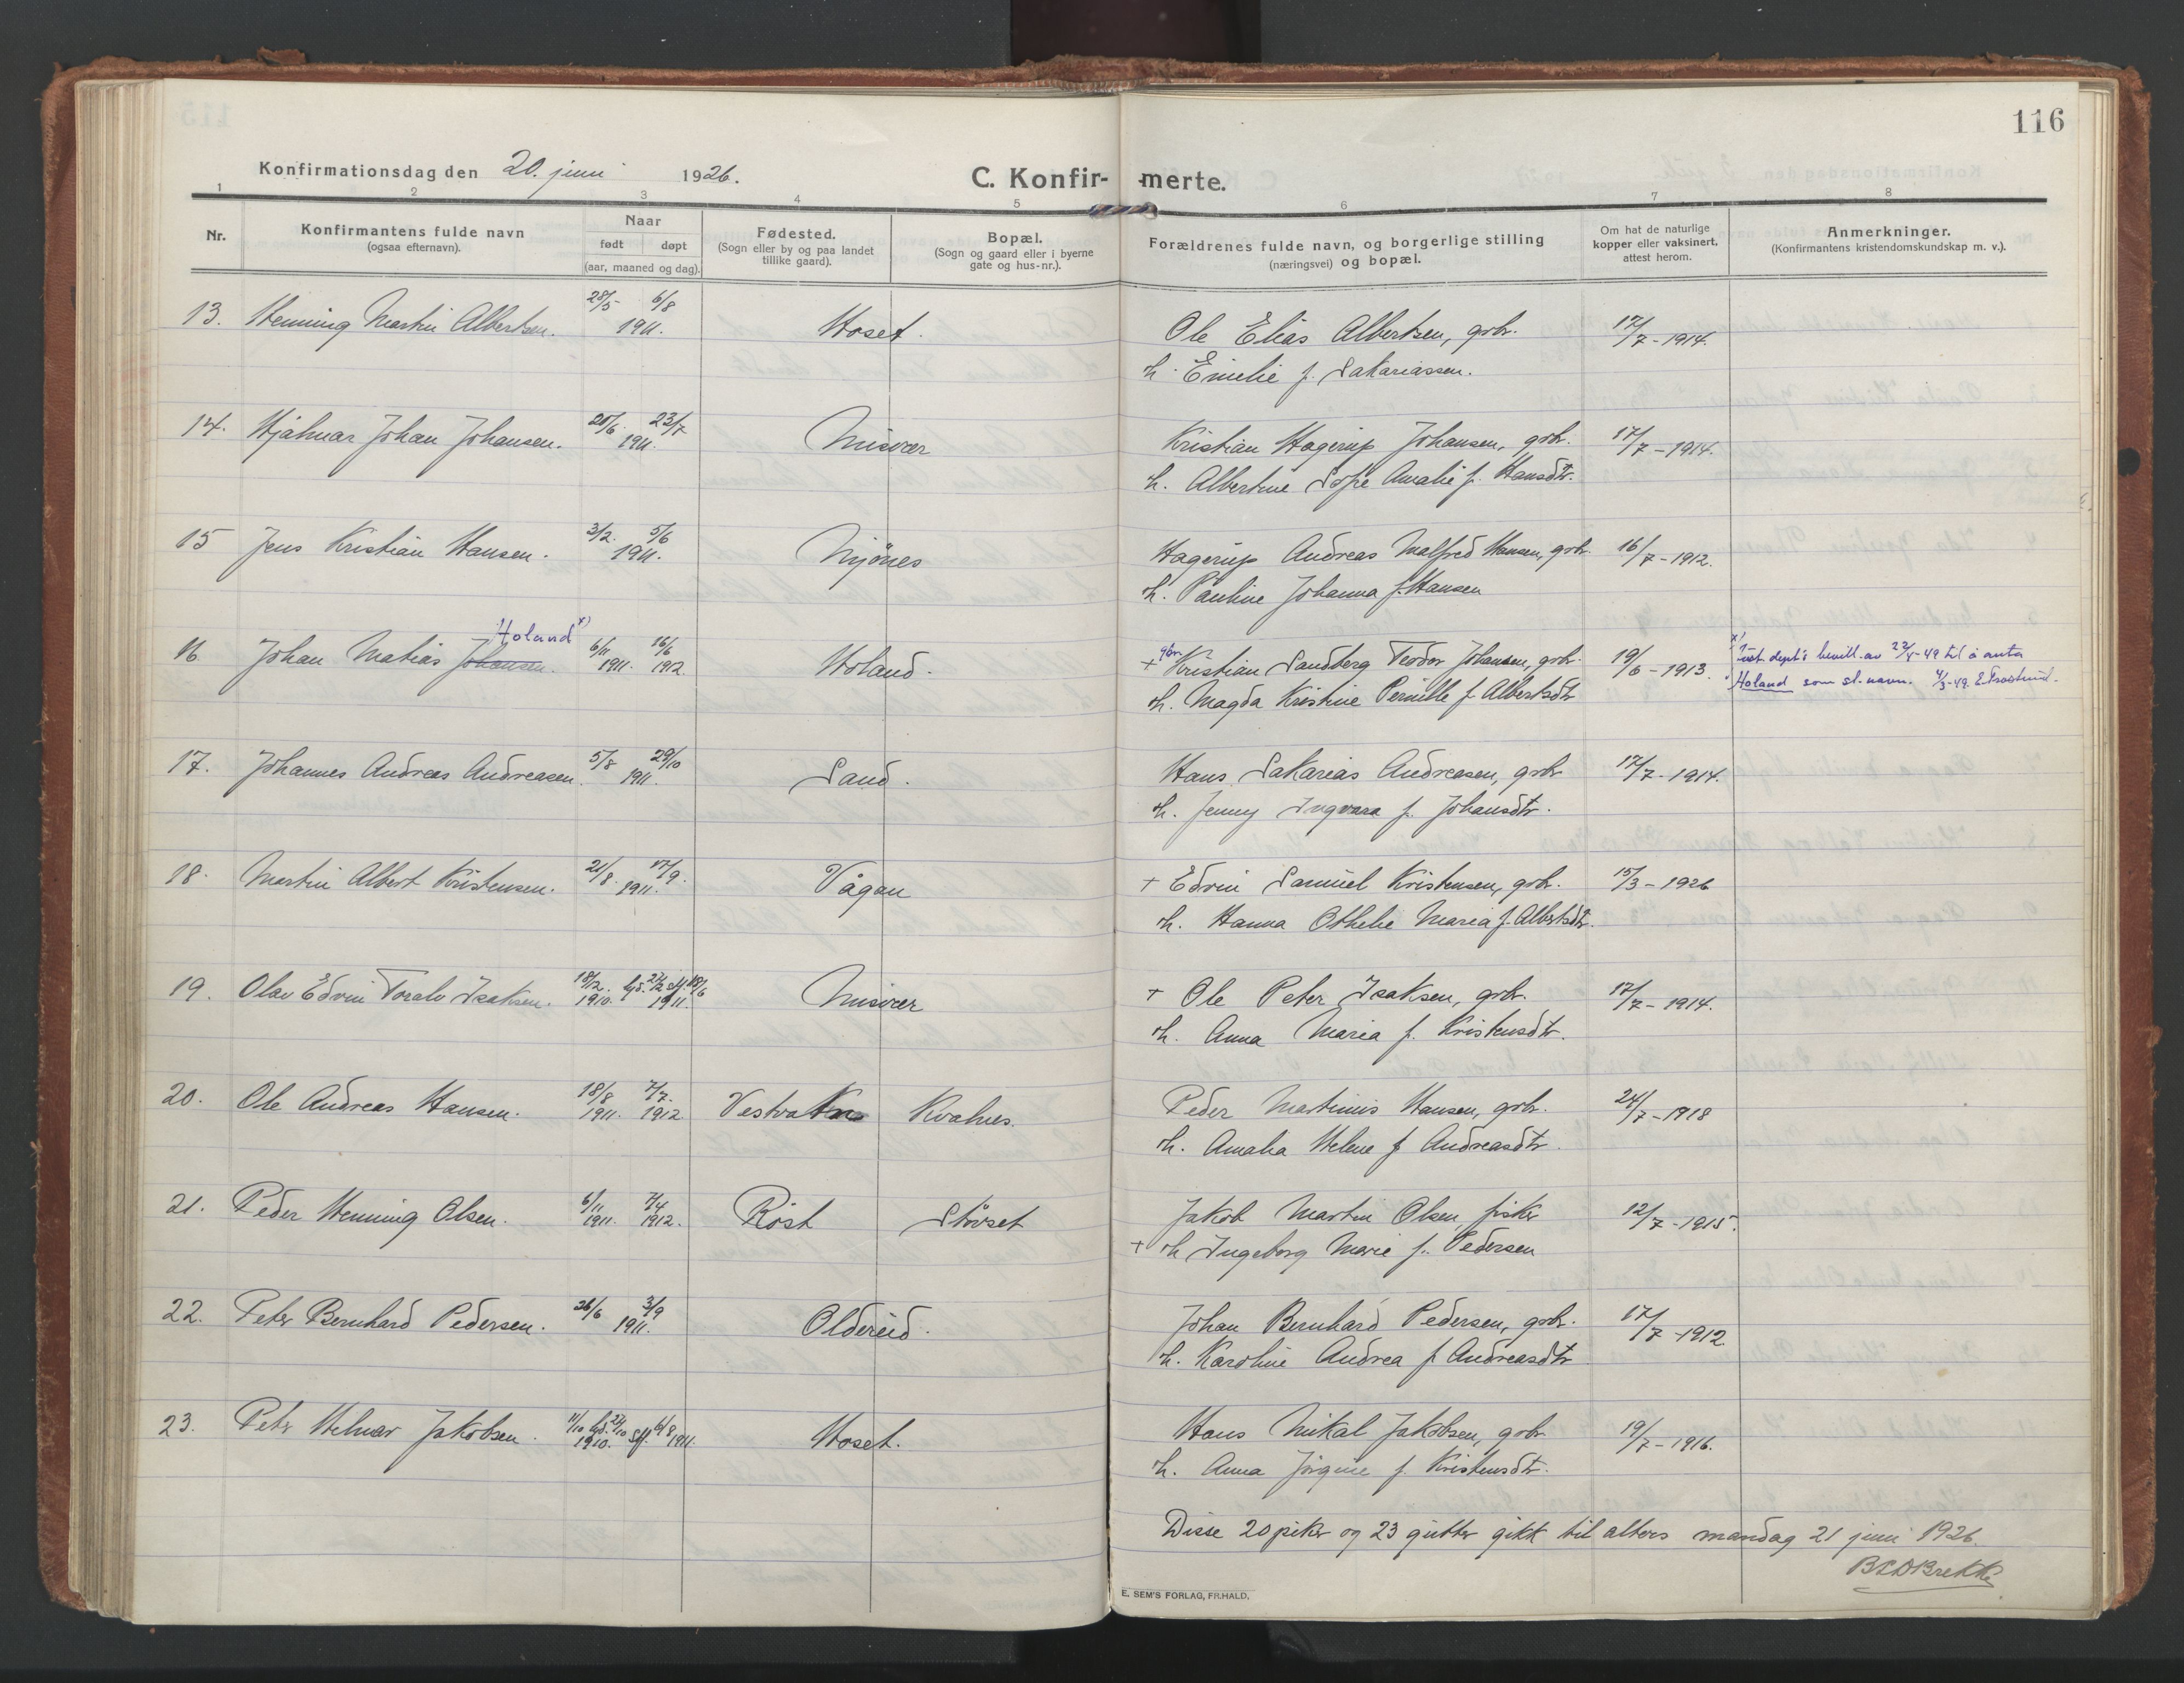 116
Konfirmationsdag den 20. juni 1926.
C. Konfir- -merte.
1 2 3 4 5 6 7 8
Nr.
Konfirmantens fulde navn
(ogsaa efternavn).
Naar
født døpt
(aar, maaned og dag).
Fødested.
(Sogn eller by og paa landet
tillike gaard).
Bopæl.
(Sogn og gaard eller i byerne
gate og hus-nr.).
Forældrenes fulde navn, og borgerlige stilling
(næringsvei) og bopæl.
Om hat de naturlige
kopper eller vaksinert,
attest herom.
Anmerkninger.
(Konfirmantens kristendomskundskap m. v.).
13. Henning Martin Albertsen. 28/5 6/8 1911. Hoset. Ole Elias Albertsen, grbr. 17/7-1914.
h. Emelie f. Sakariassen.
14. Hjalmar Johan Johansen. 20/6. 23/7 1911. Misvær Kristian Hagerup Johansen, grbr. 17/7-1914.
h. Albertine Sofie Amalie f. Hansdtr.
15 Jens Kristian Hansen. 3/2. 5/6 1911. Mjönes Hagerup Andreas Malfred Hansen, grbr. 16/7-1912.
h. Pauline Johanna f. Hansen
Holand x)
16. Johan Matias Johansen. 6/11 1911. 16/6 1912. Holand. + gbr. Kristian Sandberg Teodor Johansen, grbr. 19/6-1913. x) Just. dept's bevill. av 22/4-49 til å anta
h. Magda Kristine Pernille f. Albertsdtr Holand som sl.navn.
17. Johannes Andreas Andreasen. 5/8 29/10 1911. Sand. Hans Sakarias Andreasen, grbr 17/7-1914.
h. Jenny Ingvara f. Johansdtr.
18. Martin Albert Kristensen. 21/8. 17/9. 1911. Vågan + Edvin Samuel Kristensen, grbr. 15/3-1926
h. Hanna Othelie Maria f. Albertsdtr.
19. Olav Edvin Toralv Isaksen. 18/12. 1910. hjd. 27/2 stf. 18/6 1911. Misvær + Ole Peter Isaksen, grbr. 17/7-1914.
h. Anna Maria f. Kristensdtr.
20. Ole Andreas Hansen. 18/8 1911. 7/7. 1912 Kvalnes. Peder Martinus Hansen, grbr. 24/7-1918
h. Amalia Helene f Andreasdtr.
21. Peder Henning Olsen. 6/11 1911. 7/4 1912. Röst Störset Jakob Martin Olsen, fisker 12/7-1915.
+ h Ingeborg Marie f. Pedersen
22. Peter Bernhard Pedersen. 26/6 3/9 1911. Oldereid. Johan Bernhard Pedersen, grbr. 17/7-1912.
h. Karoline Andrea f Andreasdtr
23. Peter Helmar Jakobsen. 11/10 hjd. 27/10 1910. stf. 6/8 1911. Hoset. Hans Mikal Jakobsen, grbr 19/7-1916.
h. Anna Jörgine f. Kristensdtr.
Disse 20 piker og 23 gutter gikk til alters mandag 21 juni 1926.
E. SEM'S FORLAG, FR.HALD.